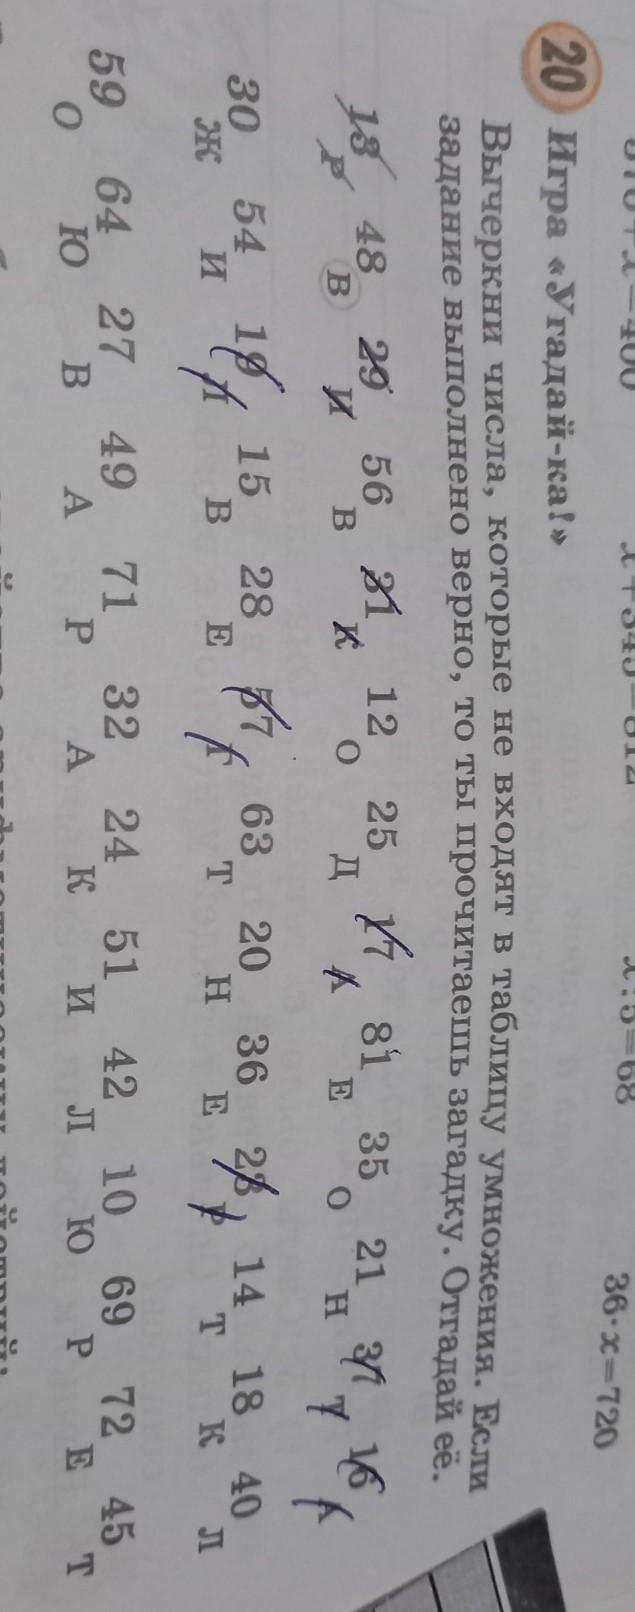 x=400
36·x=720
20 Игра «Угадай-ка!»
Вычеркни числа, которые не входят в таблицу умножения. Если
задание выполнено верно, то ты прочитаешь загадку. Отгадай её.
13 48 29 56 31 12 25 17 81 35 21 37 16
Р В И В К О Д А Е О Н Т А
30 54 19 15 28 57 63 20 36 23 14 18 40
Ж И Л В Е Г Т Н Е Р Т К Л
59 64 27 49 71 32 24 51 42 10 69 72 45
О Ю В А Р А К И Л Ю Р Е Т